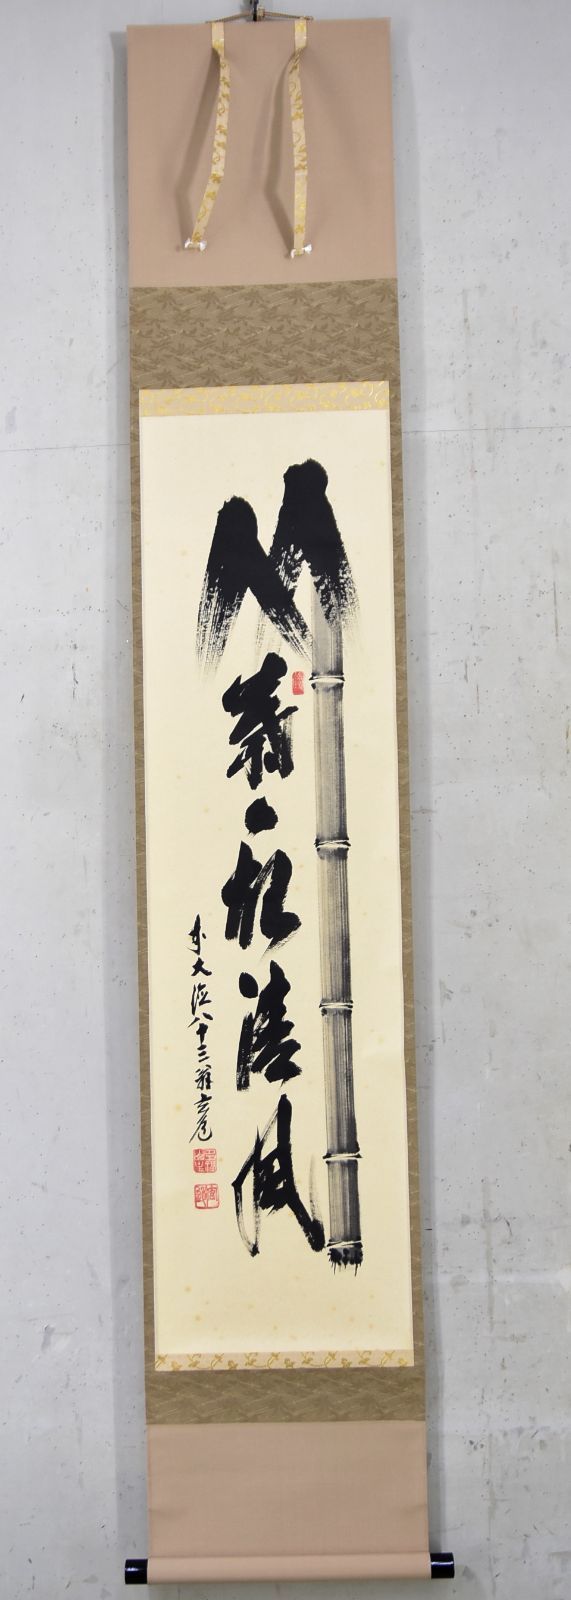 竹葉々起清風
前大徳八十三翁